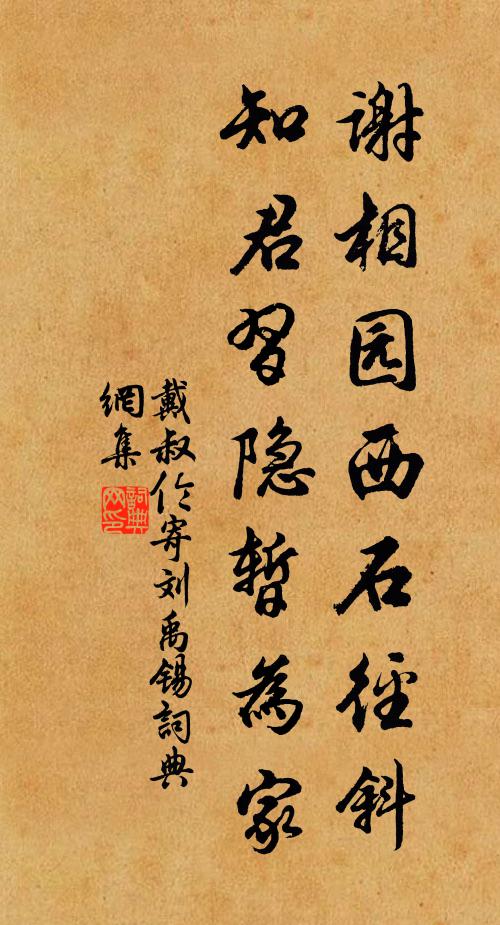 谢相园西石径斜
知君习隐暂为家
戴叔伦寄刘禹锡詞典
網集
詞典
网印